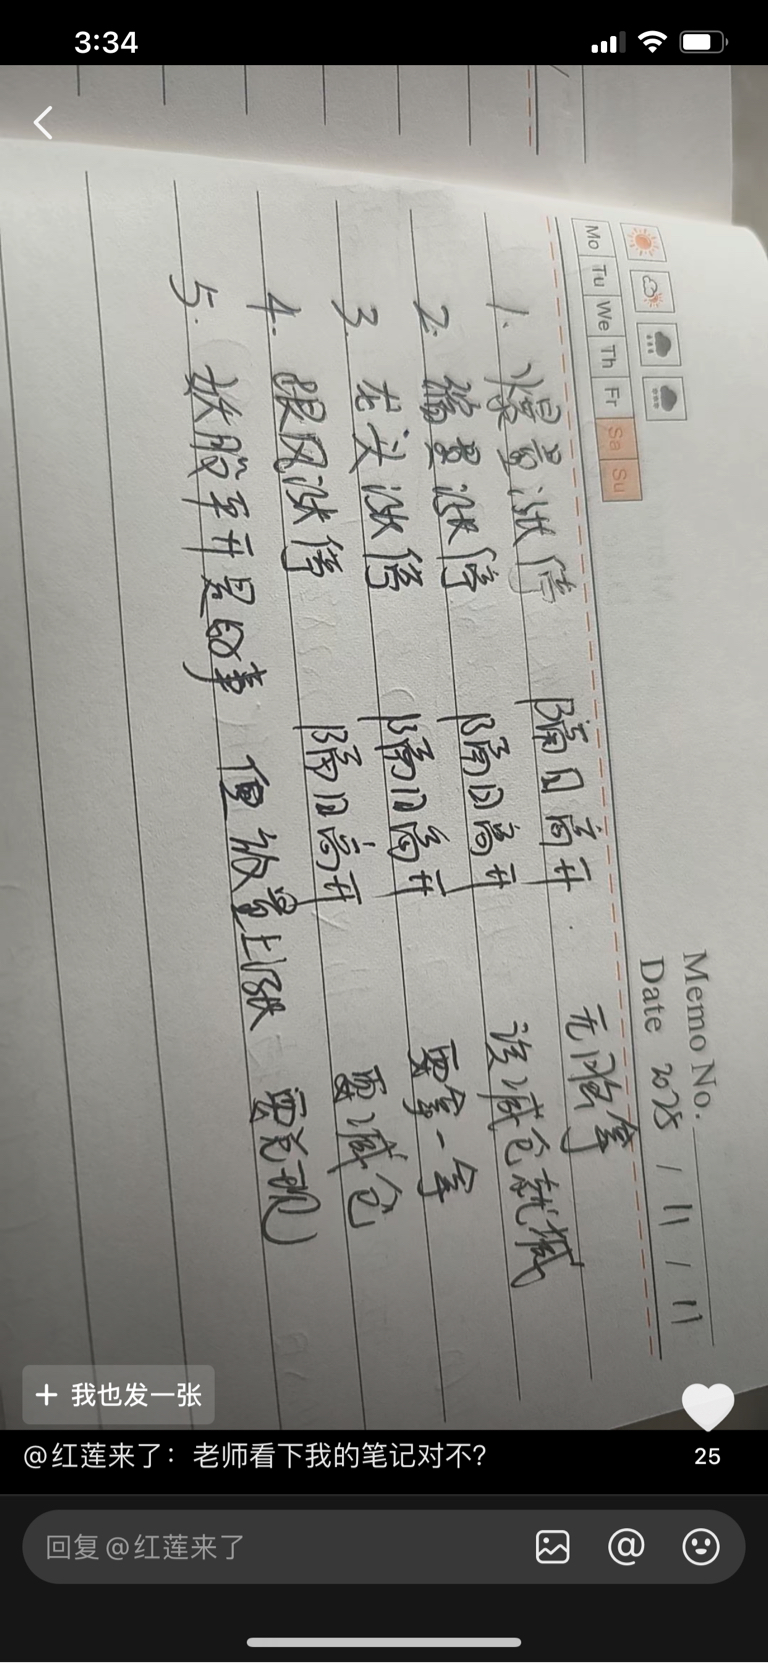 3:34
Memo No.
Date 2025 / 11 / 11
Mo Tu We Th Fr Sa Su
1. 爆量涨停 隔日高开 无脑拿
2. 缩量涨停 隔日高开 该减仓就减
3. 龙头涨停 隔日高开 要拿一拿
4. 跟风涨停 隔日高开 要减仓
5. 妖股平开是故事 但放量上涨 要兑现
+ 我也发一张
@红莲来了：老师看下我的笔记对不？
25
回复@红莲来了